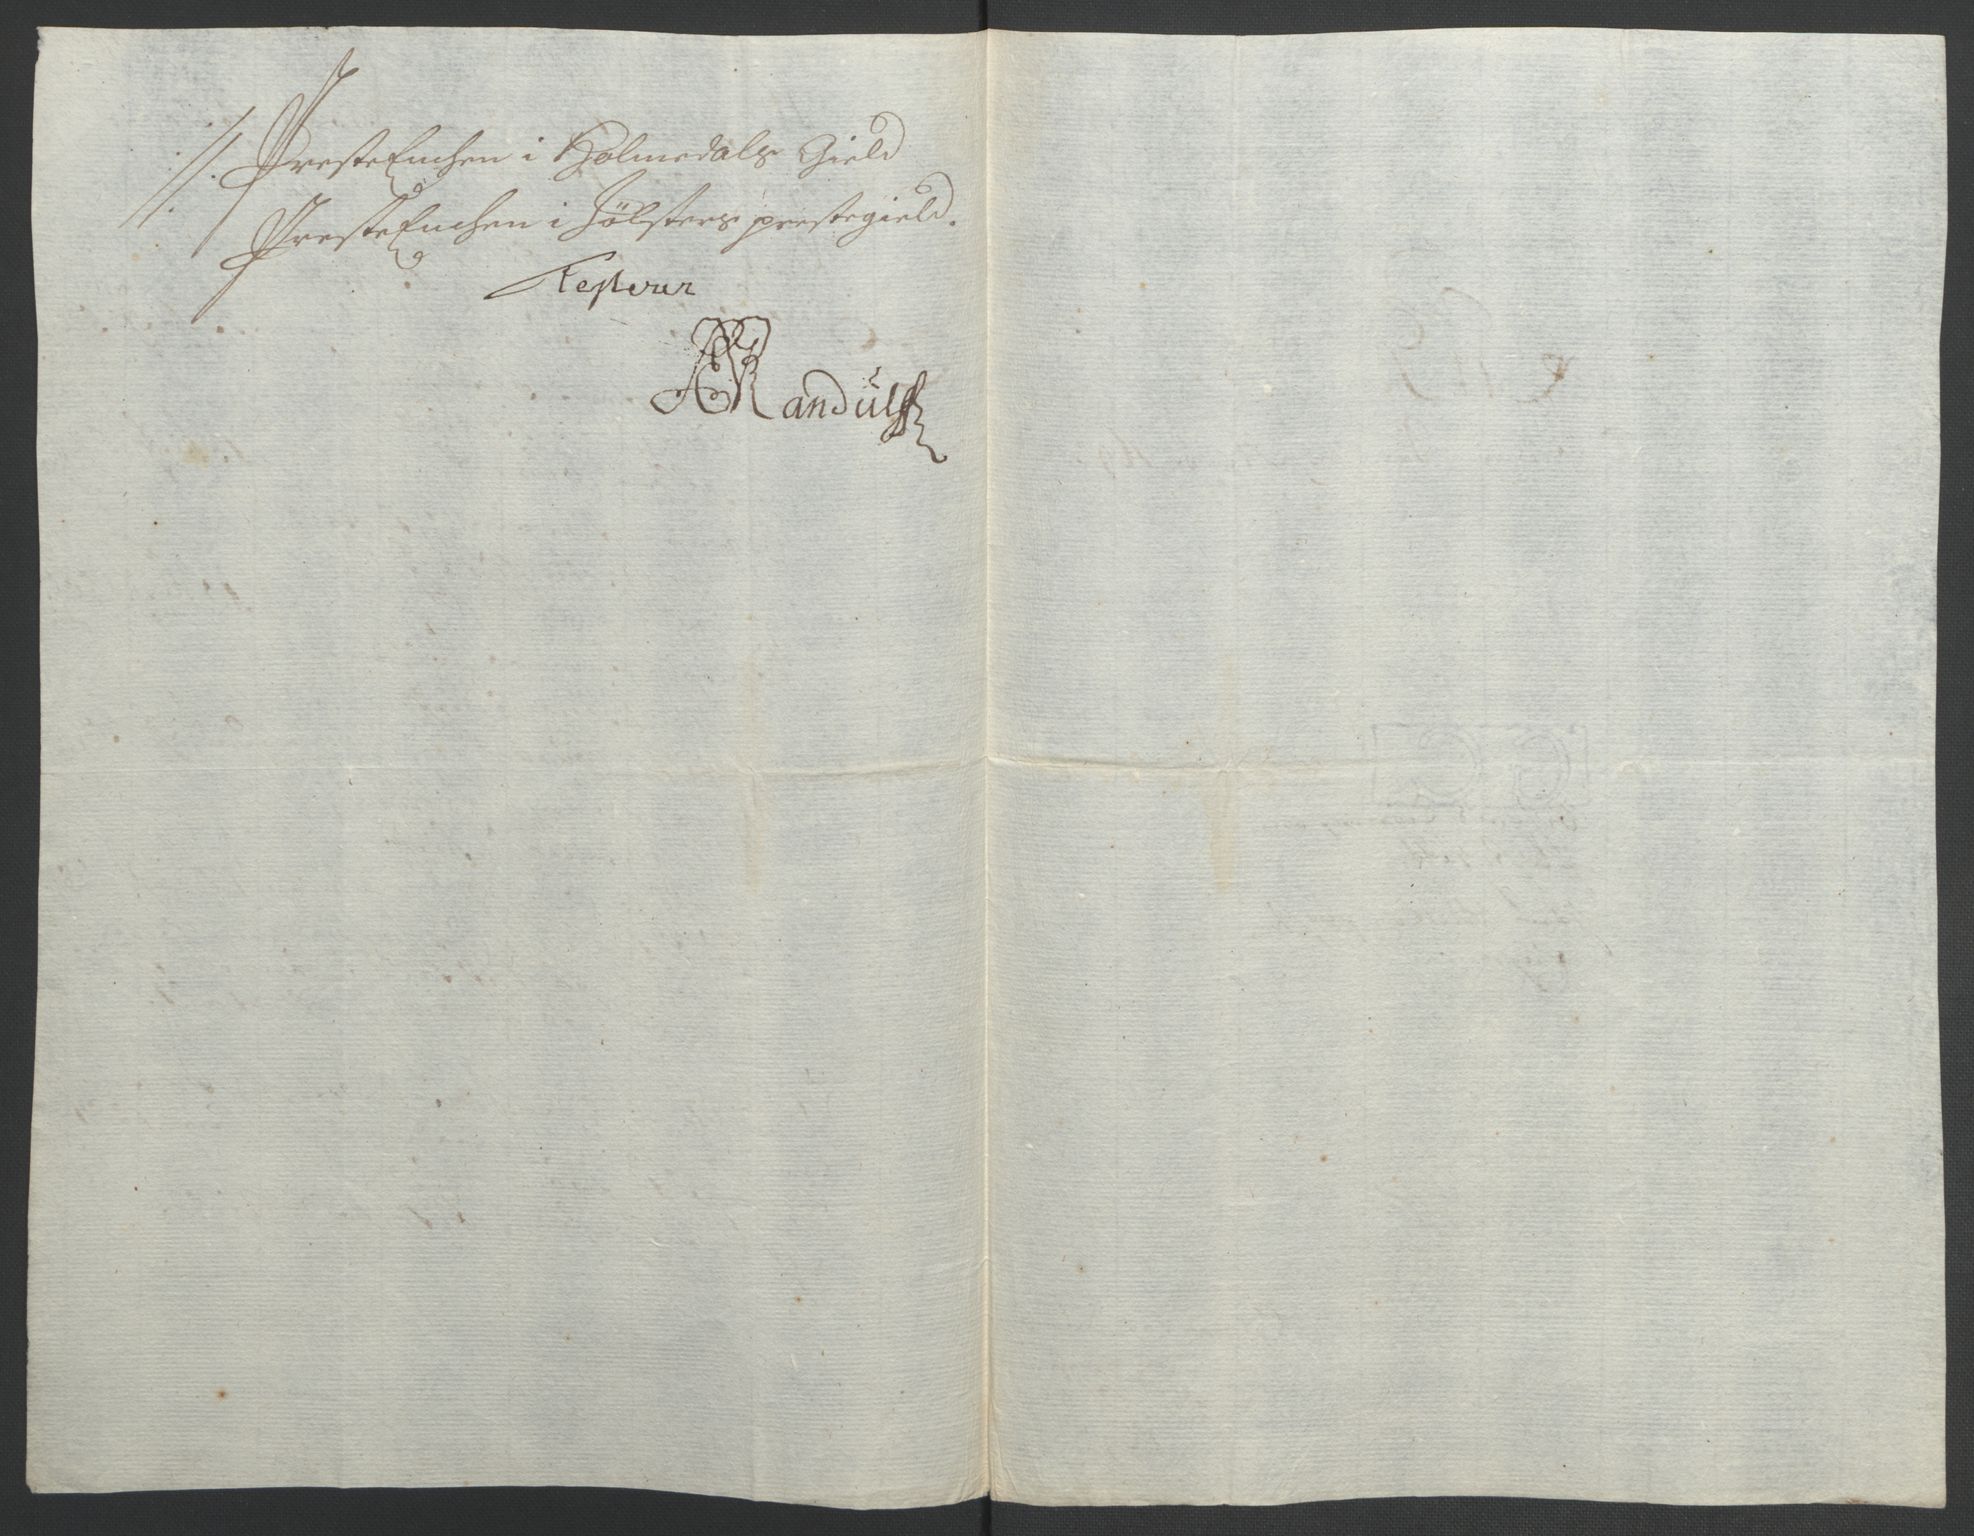 //. PresteEnchen i Holmedals Gield
PresteEnchen i Jölsters prestegield.
Testerer
ARandulff